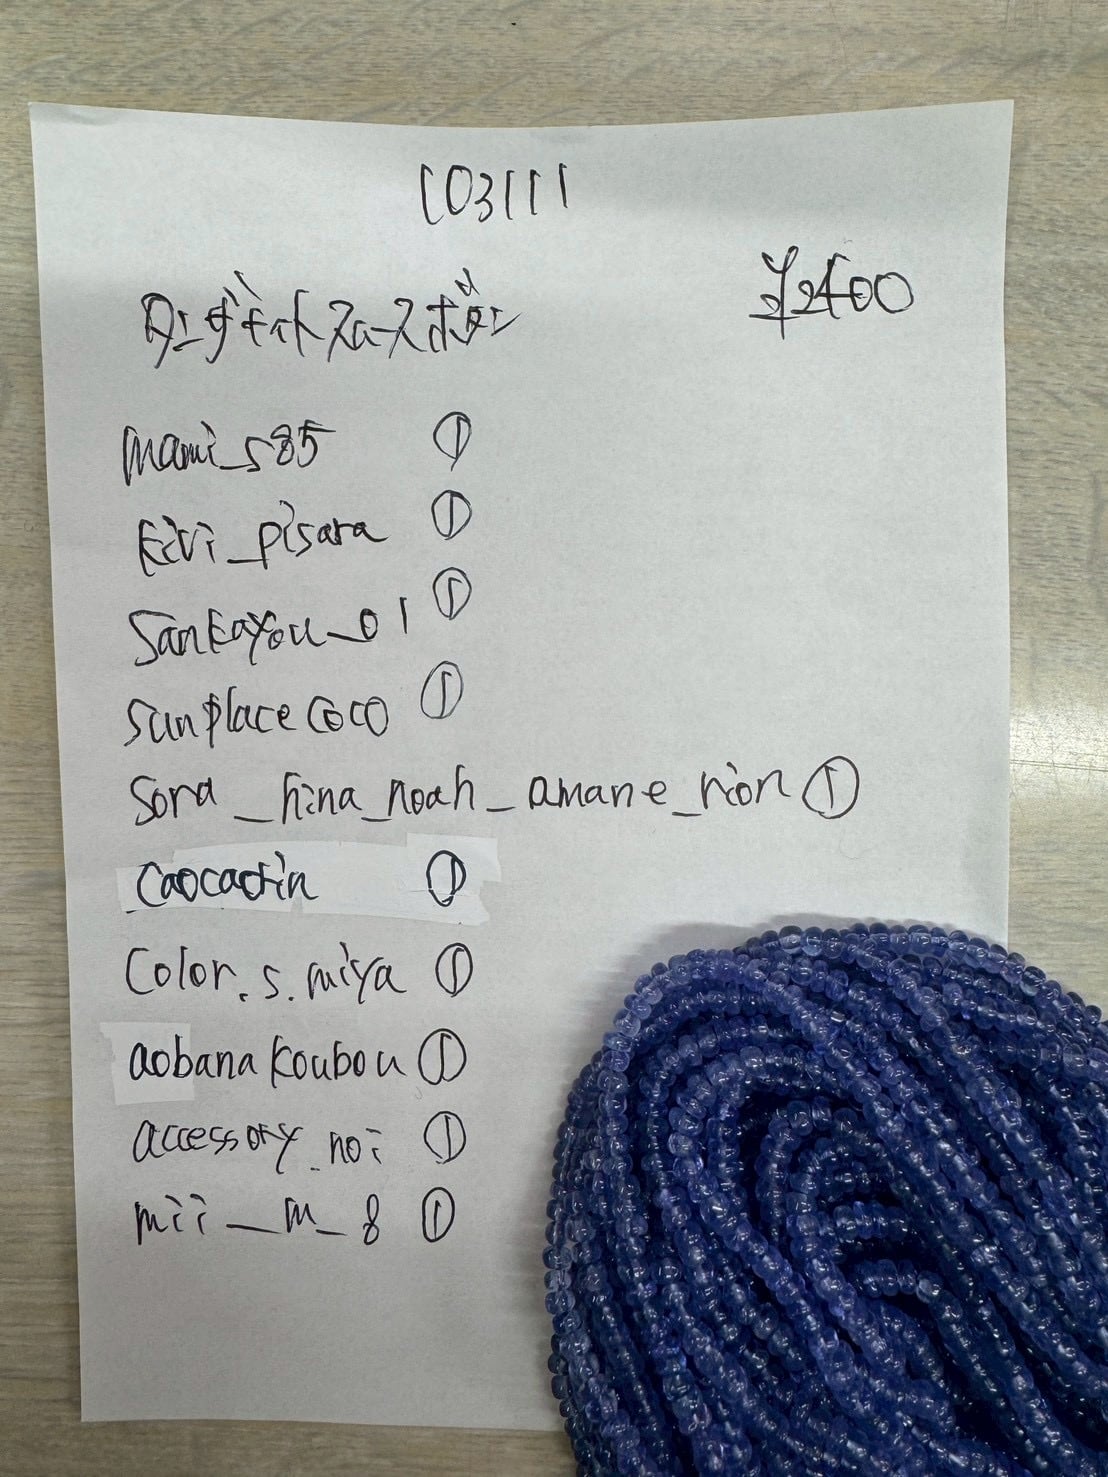 103111
タンザナイトスムースボタン
¥2400
mami_s85 ①
kivi_pisara ①
sankayou_01 ①
sunplacecoco ①
sora_hina_noah_amane_rion ①
①
color.s.miya ①
aobanakoubou ①
accessory.noi ①
mii_m_8 ①